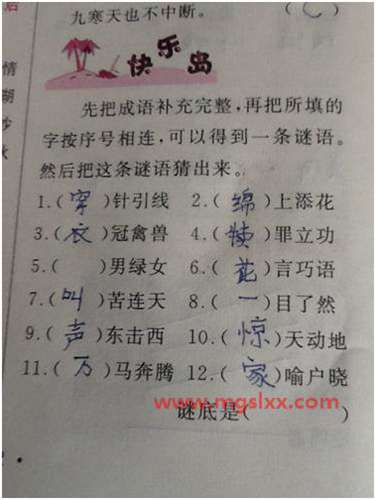 九寒天也不中断。 ( C )
快乐岛
先把成语补充完整,再把所填的
字按序号相连,可以得到一条谜语。
然后把这条谜语猜出来。
1.( 穿 )针引线 2.( 绵 )上添花
3.( 衣 )冠禽兽 4.( 赎 )罪立功
5.( )男绿女 6.( 花 )言巧语
7.( 叫 )苦连天 8.( 一 )目了然
9.( 声 )东击西 10.( 惊 )天动地
11.( 万 )马奔腾 12.( 家 )喻户晓
www.mgslxx.com
谜底是( )